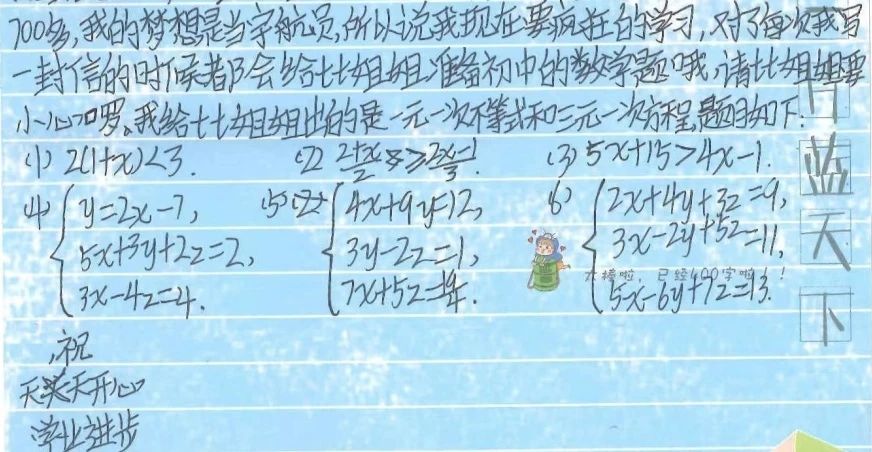 700多,我的梦想是当宇航员,所以说我现在要疯狂的学习,对了每次我写
一封信的时候都会给比姐姐准备初中的数学题哦,请比姐姐要
小心啰。我给比姐姐出的是一元一次不等式和三元一次方程,题目如下:
(1) 2(1+x)<3. (2) (2+x)/2 ≥ (2x-1)/3. (3) 5x+15>4x-1.
(4) { y=2x-7, (5) { 4x+9y=12, (6) { 2x+4y+3z=9,
5x+3y+2z=2, 3y-2z=1, 3x-2y+5z=11,
大棒啦,已经400字啦!
3x-4z=4. 7x+5z= 5x-6y+7z=13.
祝
天天开心
学业进步
蓝
天
下